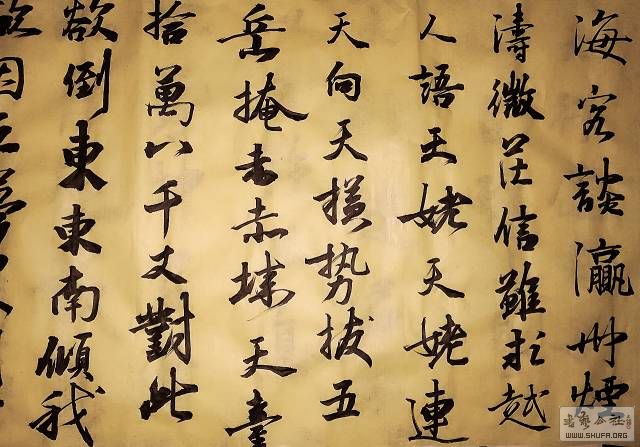 海客談瀛州煙
濤微茫信難求越
人語天姥天姥連
天向天横势拔五
岳掩赤赤城天臺
拾萬八千丈對此
欲倒東東南傾我
欲因之夢
WWW.SHUFA.ORG